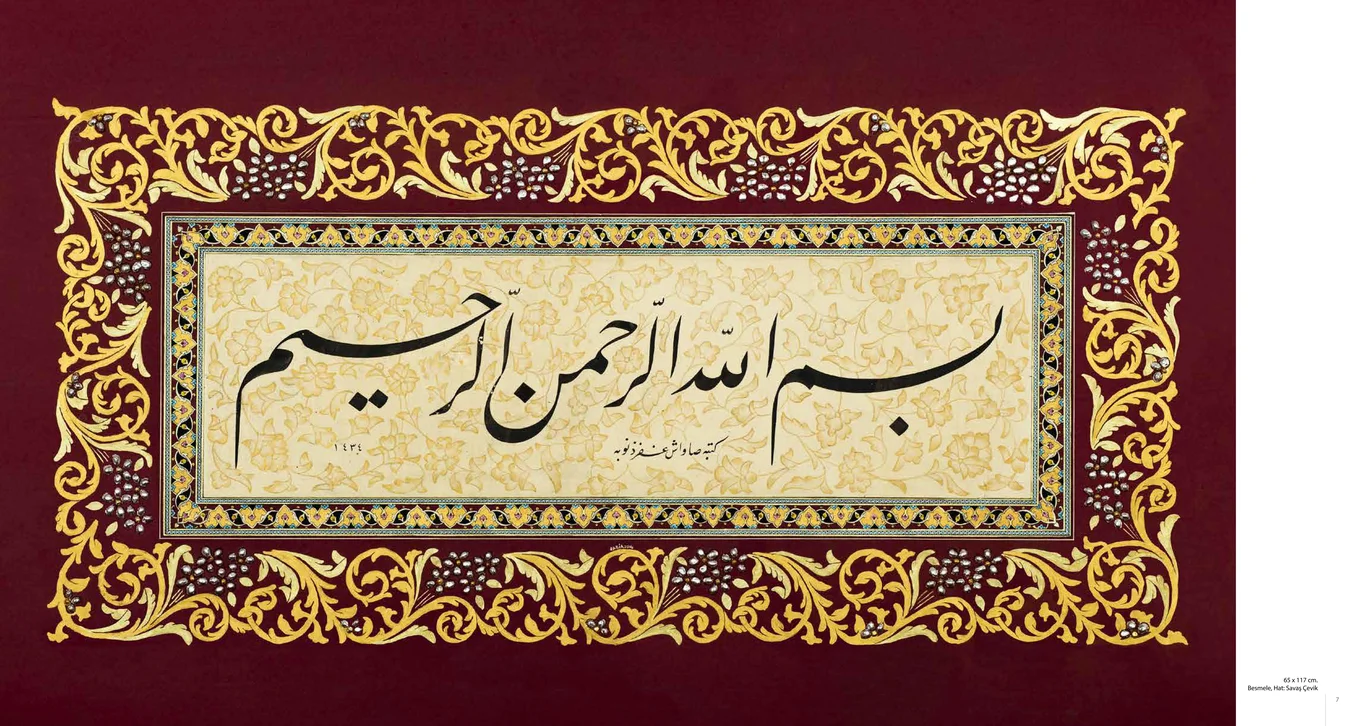 بسم الله الرحمن الرحيم
كتبه صاواش غفر ذنوبه
١٤٣٤
65 x 117 cm.
Besmele, Hat: Savaş Çevik
7